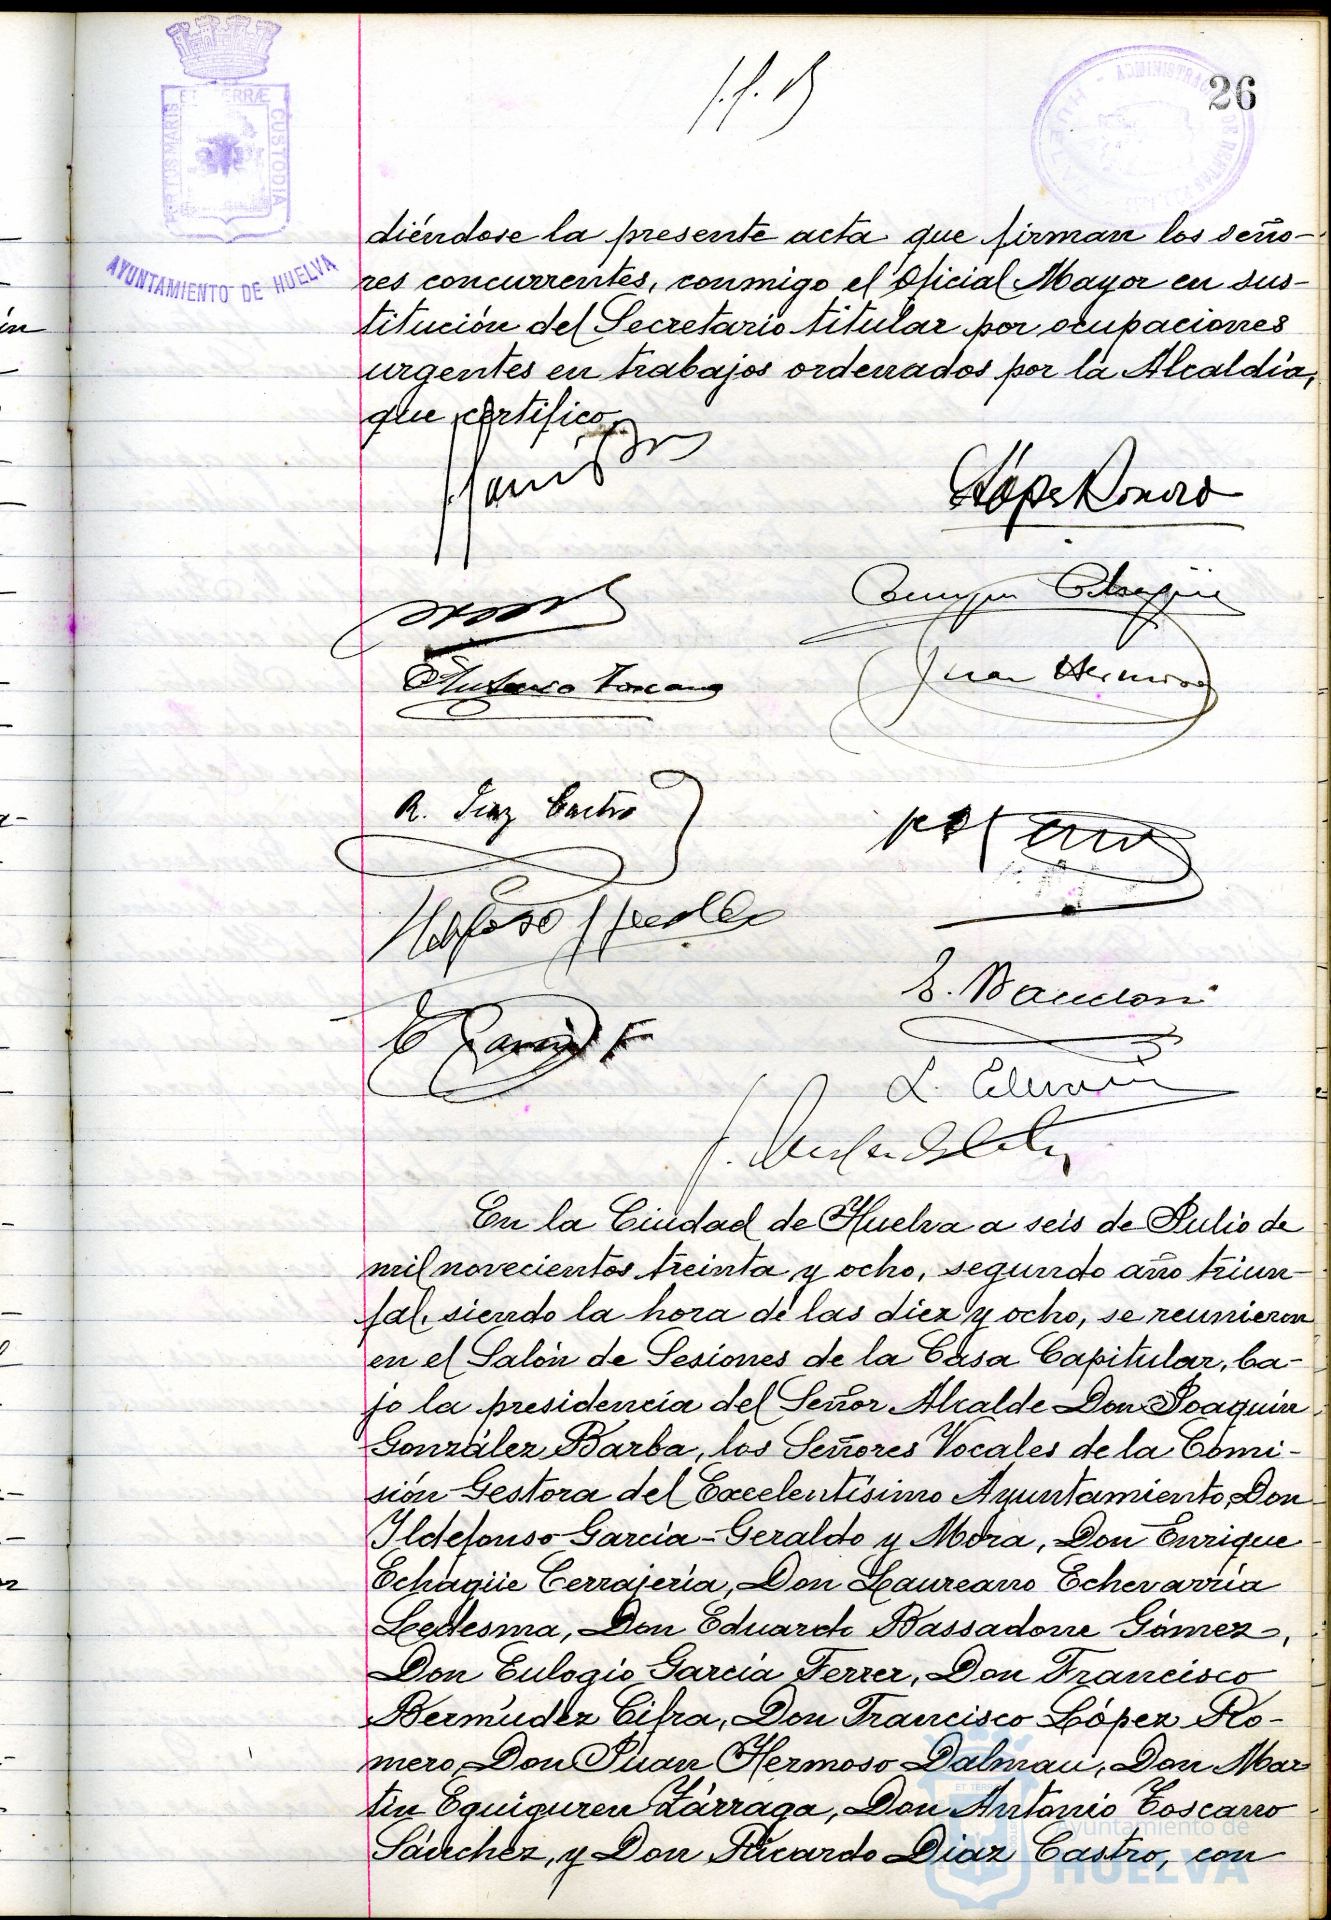 26
PORTUS MARIS ET TERRÆ CUSTODIA
AYUNTAMIENTO DE HUELVA
diéndose la presente acta que firman los seño-
res concurrentes, conmigo el Oficial Mayor en sus-
titución del Secretario titular por ocupaciones
urgentes en trabajos ordenados por la Alcaldía,
que certifico.
López Romero
Antonio Toscano
Juan Hermoso
R. Diaz Castro
E. García F
En la Ciudad de Huelva a seis de Julio de
mil novecientos treinta y ocho, segundo año triun-
fal, siendo la hora de las diez y ocho, se reunieron
en el Salón de Sesiones de la Casa Capitular, ba-
jo la presidencia del Señor Alcalde Don Joaquín
González Barba, los Señores Vocales de la Comi-
sión Gestora del Excelentísimo Ayuntamiento, Don
Ildefonso García-Geraldo y Mora, Don Enrique
Echagüe Cerrajería, Don Laureano Echevarría
Ledesma, Don Eduardo Bassadone Gómez,
Don Eulogio García Ferrer, Don Francisco
Bermúdez Cifra, Don Francisco López Ro-
mero, Don Juan Hermoso Dalmau, Don Mar
tín Eguiguren Zárraga, Don Antonio Toscano
Sánchez, y Don Ricardo Diaz Castro, con
Ayuntamiento de
HUELVA